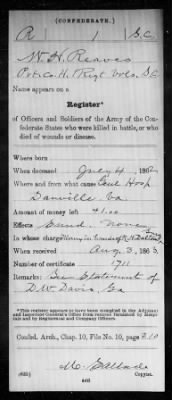 (CONFEDERATE.)
R 1 S.C.
W. H. Reaves
Pvt. Co. H, 1 Regt Vols. S.C.
Name appears on a
Register*
of Officers and Soldiers of the Army of the Confederate
States who were killed in battle, or who
died of wounds or disease.
Where born
When deceased July 4, 1862
Where and from what cause Genl Hosp
Danville, Va.
Amount of money left $1.00
Effects
In whose charge
When received Aug 3, 1863
Number of certificate 1711
Remarks: See Statement of
D.W. Davis, Ga
*This register appears to have been compiled in the Adjutant
and Inspector General's Office from returns furnished by Hospitals
and by Regimental and Company Officers.
Confed. Arch., Chap. 10, File No. 10, page 210
Copyist.